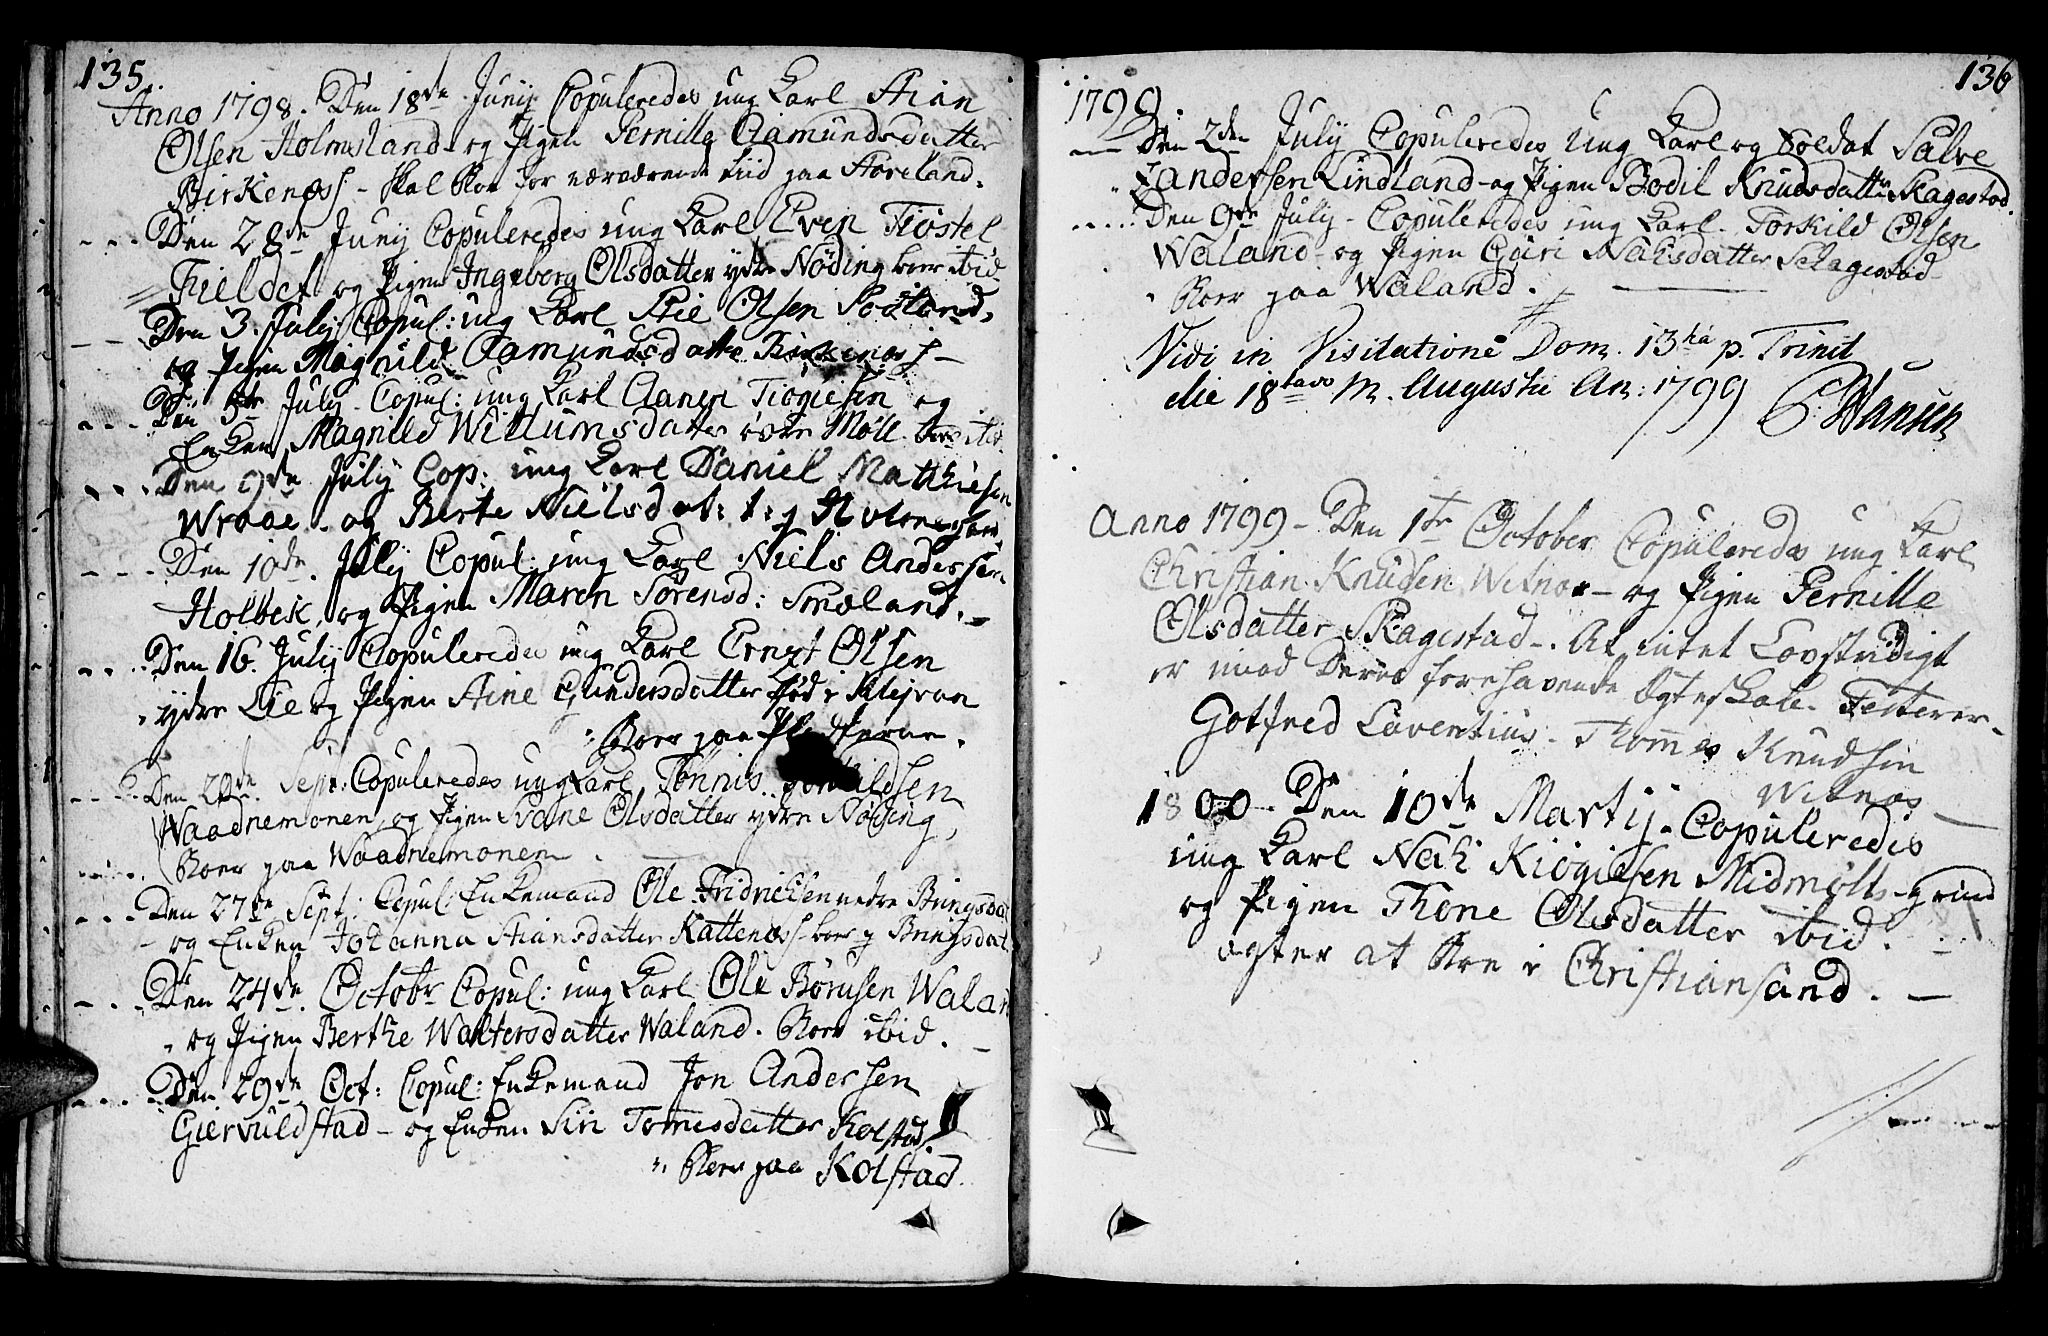 135.
Anno 1798. Den 18de Junij Copuleredes ung Karl Stian
Olsen Holmsland og Pigen Pernille Aamundsdatter
Birkenæss - skal boe for nærværende tiid paa Horeland.
Den 28de Junij Copuleredes ung Karl Even Tiostel
Fieldet og Pigen Ingeborg Olsdatter ydre Nøding boer ibid
Den 3. Julij Copul: ung Karl Stie Olsen
og Pigen Magnild Aamundsdatter Birkenæss -
Den Julij Copul: ung Karl Aanen Tiøgiesen og
Enken Magnild Willumsdatter Møll
Den 9de Julij Cop: ung Karl Daniel Mathiesen
Wraae - og Berte Nielsdat:
Den 10de Julij Copul: ung Karl Niels Andersen
Holbek, og Pigen Maren Sørensd: Smæland. -
Den 16. Julij Copuleredes ung Karl Ernst Olsen
ydre Lie og Pigen Stine Gundersdatter fød i Klejvan
Boer paa
Den Sept: Copuleredes ung Karl Tønnis
Waadnemonen, og Pigen Olsdatter ydre Nøding,
Boer paa Waadnemonen.
Den 27de Sept: Copul: Enkemand Ole Fridrichsen nedre Bringsdal
- og Enken Johanna Stiansdatter Kattenæss - boer p Bringsdal
Den 24de Octobr Copul: ung Karl Ole Børusen Walan
og Pigen Berthe Woltersdatter Waland. Boer ibid. -
Den 29de Oct: Copul: Enkemand Jon Andersen
Giervuldstad - og Enken Siri Tomesdatter Kolstad,
Boer paa Kolstad.
136
1799.
Den 2den Julij Copuleredes Ung Karl og Soldat Salve
Zandersen Lindland - og Pigen Bodil Knudsdatter Skagestad.
Den 9de Julij - Copuleredes ung Karl Torkild Olsen
Waland - og Pigen Guri Nahsdatter Skagestad
Boer paa Waland.
Vidi in Visitatione Dom. 13tia p. Trinit
die 18tavo M. Augusti An: 1799 P Hansen
Anno 1799 - Den 1te October Copuleredes ung Karl
Christian Knudsen Wetnes - og Pigen Pernille
Olsdatter Skagestad -. At intet Lovstridigt
er imod Deres forehavende Ægteskab - Testerer
Gotfred Laventius - Thommes Knudsen
Wetnes
1800 - Den 10de Martij - Copuleredes
ung Karl Nah Kiøgiesen Midmølls - grind
og Pigen Thone Olsdatter ibid.
agter at boe i Christiansand. -